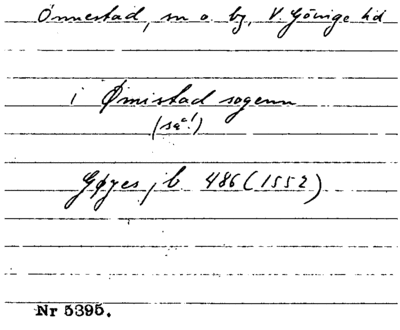 Önnestad, sn o. by, V. Göinge hd
i Ømistad sogenn
(så!)
Gøyes jb 486 (1552)
Nr 5395.